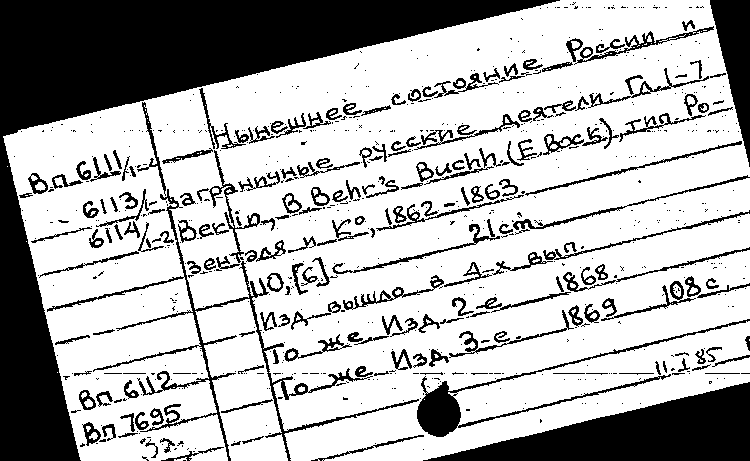 Нынешнее состояние России и
Вп 6111/1-4 заграничные русские деятели. Гл. 1-7
6113/1-4 Berlin, B. Behr's Buchh. (E Bock), тип. Ро-
6114/1-2 зенталя и К°, 1862-1863.
110, [6] с 21 cm.
Изд вышло в 4-х вып.
То же Изд 2-е. 1868.
Вп 6112 То же Изд 3-е. 1869 108 с
Вп 7695
11.I 85